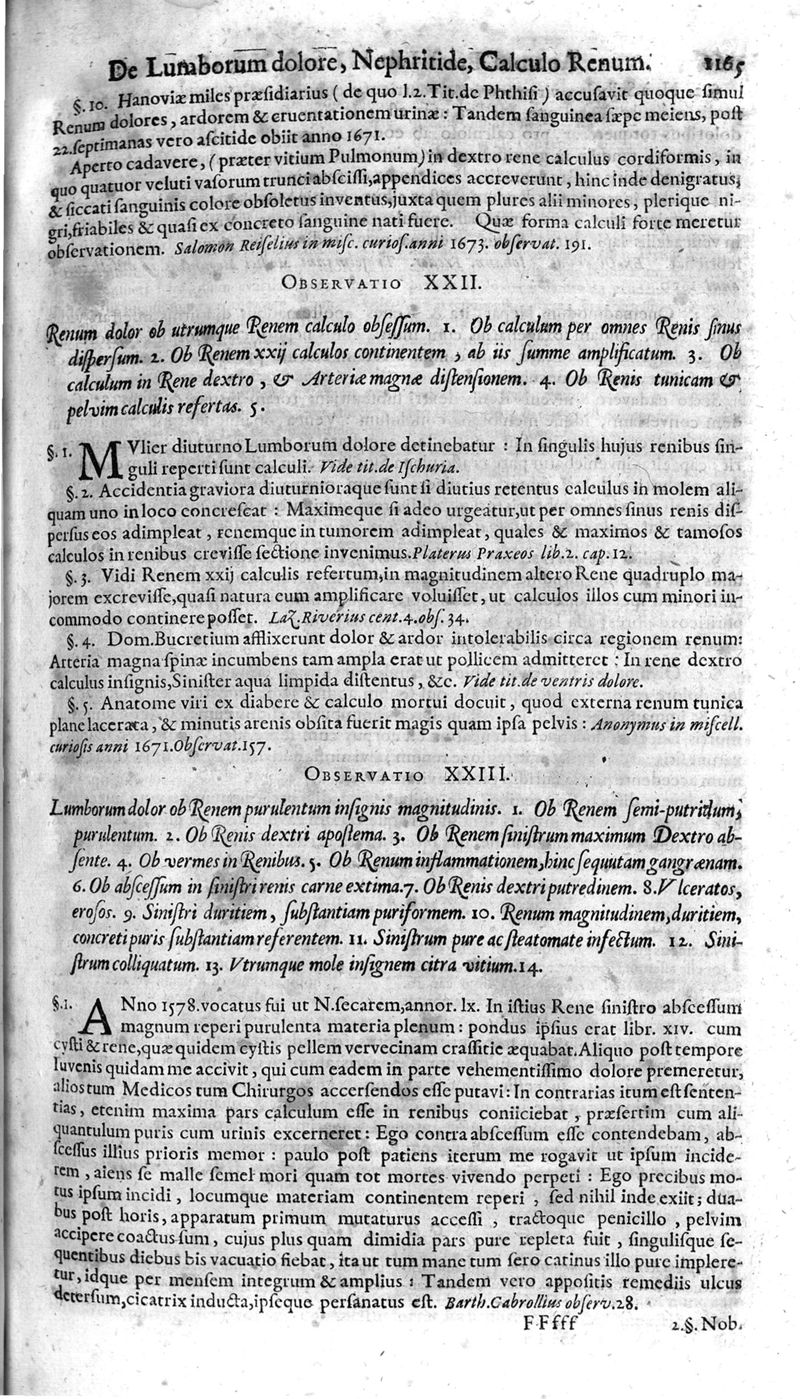 De Lumborum dolore, Nephritide, Calculo Renum. 1165
§. 10. Hanoviæ miles præsidiarius ( de quo l.2.Tit.de Phthisi ) accusavit quoque simul
Renum dolores, ardorem & eruentationem urinæ : Tandem sanguinea sæpe meiens, post
22.septimanas vero ascitide obiit anno 1671.
Aperto cadavere, (præter vitium Pulmonum) in dextro rene calculus cordiformis, in
quo quatuor veluti vasorum trunci abscissi,appendices accreverunt, hinc inde denigratus,
& siccati sanguinis colore obsoletus inventus,juxta quem plures alii minores, plerique ni-
gri,friabiles & quasi ex concreto sanguine nati fuere. Quæ forma calculi forte meretur
observationem. Salomon Reiselius in misc. curios.anni 1673. observat. 191.
OBSERVATIO XXII.
Renum dolor ob utrumque Renem calculo obsessum. 1. Ob calculum per omnes Renis sinus
dispersum. 2. Ob Renem xxij calculos continentem , ab iis summe amplificatum. 3. Ob
calculum in Rene dextro , & Arteriæ magnæ distensionem. 4. Ob Renis tunicam &
pelvim calculis refertas. 5.
§. 1. MVlier diuturno Lumborum dolore detinebatur : In singulis hujus renibus sin-
guli reperti sunt calculi. Vide tit.de Ischuria.
§. 2. Accidentia graviora diuturnioraque sunt si diutius retentus calculus in molem ali-
quam uno in loco concrescat : Maximeque si adeo urgeatur,ut per omnes sinus renis dis-
persus eos adimpleat , renemque in tumorem adimpleat, quales & maximos & tamosos
calculos in renibus crevisse sectione invenimus.Platerus Praxeos lib.2. cap.12.
§. 3. Vidi Renem xxij calculis refertum,in magnitudinem altero Rene quadruplo ma-
jorem excrevisse,quasi natura eum amplificare voluisset, ut calculos illos cum minori in-
commodo continere posset. Laz.Riverius cent.4.obs.34.
§. 4. Dom.Bucretium afflixerunt dolor & ardor intolerabilis circa regionem renum:
Arteria magna spinæ incumbens tam ampla erat ut pollicem admitteret : In rene dextro
calculus insignis,Sinister aqua limpida distentus, &c. Vide tit.de ventris dolore.
§. 5. Anatome viri ex diabere & calculo mortui docuit, quod externa renum tunica
plane lacerata, & minutis arenis obsita fuerit magis quam ipsa pelvis : Anonymus in miscell.
curiosis anni 1671.Observat.157.
OBSERVATIO XXIII.
Lumborum dolor ob Renem purulentum insignis magnitudinis. 1. Ob Renem semi-putridum,
purulentum. 2. Ob Renis dextri apostema. 3. Ob Renem sinistrum maximum Dextro ab-
sente. 4. Ob vermes in Renibus. 5. Ob Renum inflammationem,hinc sequutam gangrænam.
6. Ob abscessum in sinistri renis carne extima.7. Ob Renis dextri putredinem. 8.Vlceratos,
erosos. 9. Sinistri duritiem, substantiam puriformem. 10. Renum magnitudinem,duritiem,
concreti puris substantiam referentem. 11. Sinistrum pure ac steatomate infectum. 12. Sini-
strum colliquatum. 13. Vtrumque mole insignem citra vitium.14.
§.1. ANno 1578.vocatus fui ut N.secarem,annor. lx. In istius Rene sinistro abscessum
magnum reperi purulenta materia plenum : pondus ipsius erat libr. xiv. cum
cysti & rene,quæ quidem cystis pellem vervecinam crassitie æquabat.Aliquo post tempore
Iuvenis quidam me accivit , qui cum eadem in parte vehementissimo dolore premeretur,
alios tum Medicos tum Chirurgos accersendos esse putavi : In contrarias itum est senten-
tias, etenim maxima pars calculum esse in renibus coniiciebat , præsertim cum ali-
quantulum puris cum urinis excerneret : Ego contra abscessum esse contendebam, ab-
scessus illius prioris memor : paulo post patiens iterum me rogavit ut ipsum incide-
rem , aiens se malle semel mori quam tot mortes vivendo perpeti : Ego precibus mo-
tus ipsum incidi , locumque materiam continentem reperi , sed nihil inde exiit; dua-
bus post horis, apparatum primum mutaturus accessi , tractoque penicillo , pelvim
accipere coactus sum, cujus plus quam dimidia pars pure repleta fuit , singulisque se-
quentibus diebus bis vacuatio fiebat , ita ut tum mane tum sero catinus illo pure implere-
tur, idque per mensem integrum & amplius : Tandem vero appositis remediis ulcus
detersum,cicatrix inducta,ipseque persanatus est. Barth.Cabrollius observ.28.
F Ffff 2.§. Nob.